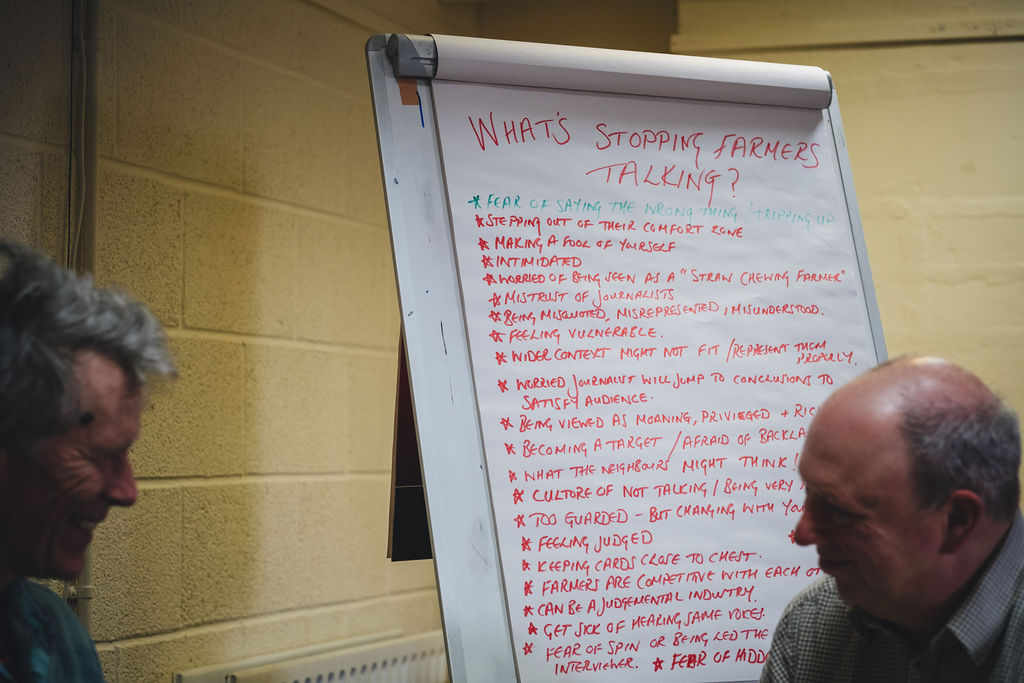 WHAT'S STOPPING FARMERS
TALKING?
* FEAR OF SAYING THE WRONG THING / TRIPPING UP
* STEPPING OUT OF THEIR COMFORT ZONE
* MAKING A FOOL OF YOURSELF
* INTIMIDATED
* WORRIED OF BEING SEEN AS A "STRAW CHEWING FARMER"
* MISTRUST OF JOURNALISTS
* BEING MISQUOTED, MISREPRESENTED, MISUNDERSTOOD.
* FEELING VULNERABLE.
* WIDER CONTEXT MIGHT NOT FIT / REPRESENT THEM
PROPERLY.
* WORRIED JOURNALIST WILL JUMP TO CONCLUSIONS TO
SATISFY AUDIENCE.
* BEING VIEWED AS MOANING, PRIVIEGED + RIC
* BECOMING A TARGET / AFRAID OF BACKLA
* WHAT THE NEIGHBOURS MIGHT THINK!
* CULTURE OF NOT TALKING / BEING VERY
* TOO GUARDED - BUT CHANGING WITH YOU
* FEELING JUDGED *
* KEEPING CARDS CLOSE TO CHEST.
* FARMERS ARE COMPETITIVE WITH EACH OT
* CAN BE A JUDGEMENTAL INDUSTRY.
* GET SICK OF HEARING SAME VOICES.
* FEAR OF SPIN OR BEING LED THE
INTERVIEWER. * FEAR OF HIDD